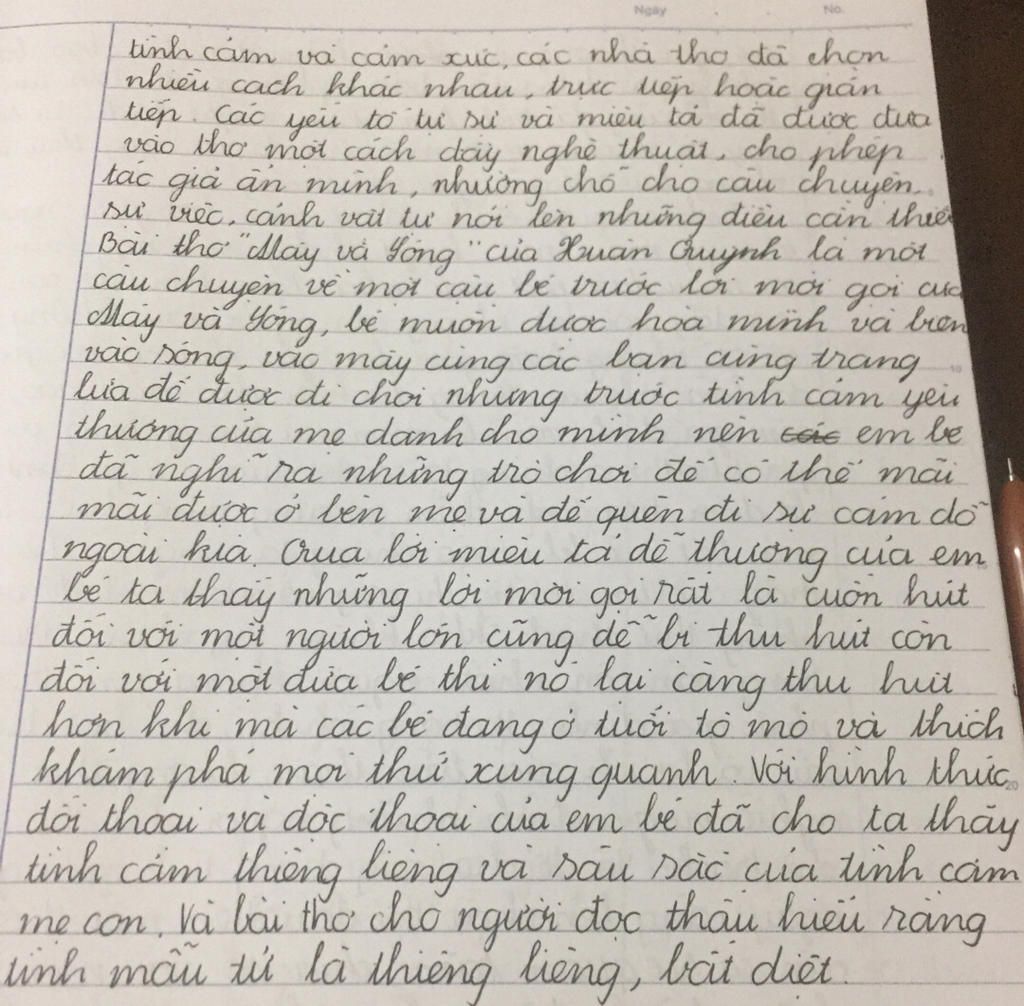 Ngày No.
tình cảm và cảm xúc, các nhà thơ đã chọn
nhiều cách khác nhau, trực tiếp hoặc gián
tiếp. Các yếu tố tự sự và miêu tả đã được đưa
vào thơ một cách đầy nghệ thuật, cho phép
tác giả ẩn mình, nhường chỗ cho câu chuyện,
sự việc, cảnh vật tự nói lên những điều cần thiế
Bài thơ "Mây và Sóng" của Xuân Quỳnh là một
câu chuyện về một cậu bé trước lời mời gọi của
Mây và Sóng, bé muốn được hòa mình và biến
vào sóng, vào mây cùng các bạn cùng trang
lứa để được đi chơi nhưng trước tình cảm yêu
thương của mẹ dành cho mình nên các em bé
đã nghĩ ra những trò chơi để có thể mãi
mãi được ở bên mẹ và để quên đi sự cám dỗ
ngoài kia. Qua lời miêu tả dễ thương của em
bé ta thấy những lời mời gọi rất là cuốn hút
đối với một người lớn cũng dễ bị thu hút còn
đối với một đứa bé thì nó lại càng thu hút
hơn khi mà các bé đang ở tuổi tò mò và thích
khám phá mọi thứ xung quanh. Với hình thức
đối thoại và độc thoại của em bé đã cho ta thấy
tình cảm thiêng liêng và sâu sắc của tình cảm
mẹ con. Và bài thơ cho người đọc thấu hiểu rằng
tình mẫu tử là thiêng liêng, bất diệt.